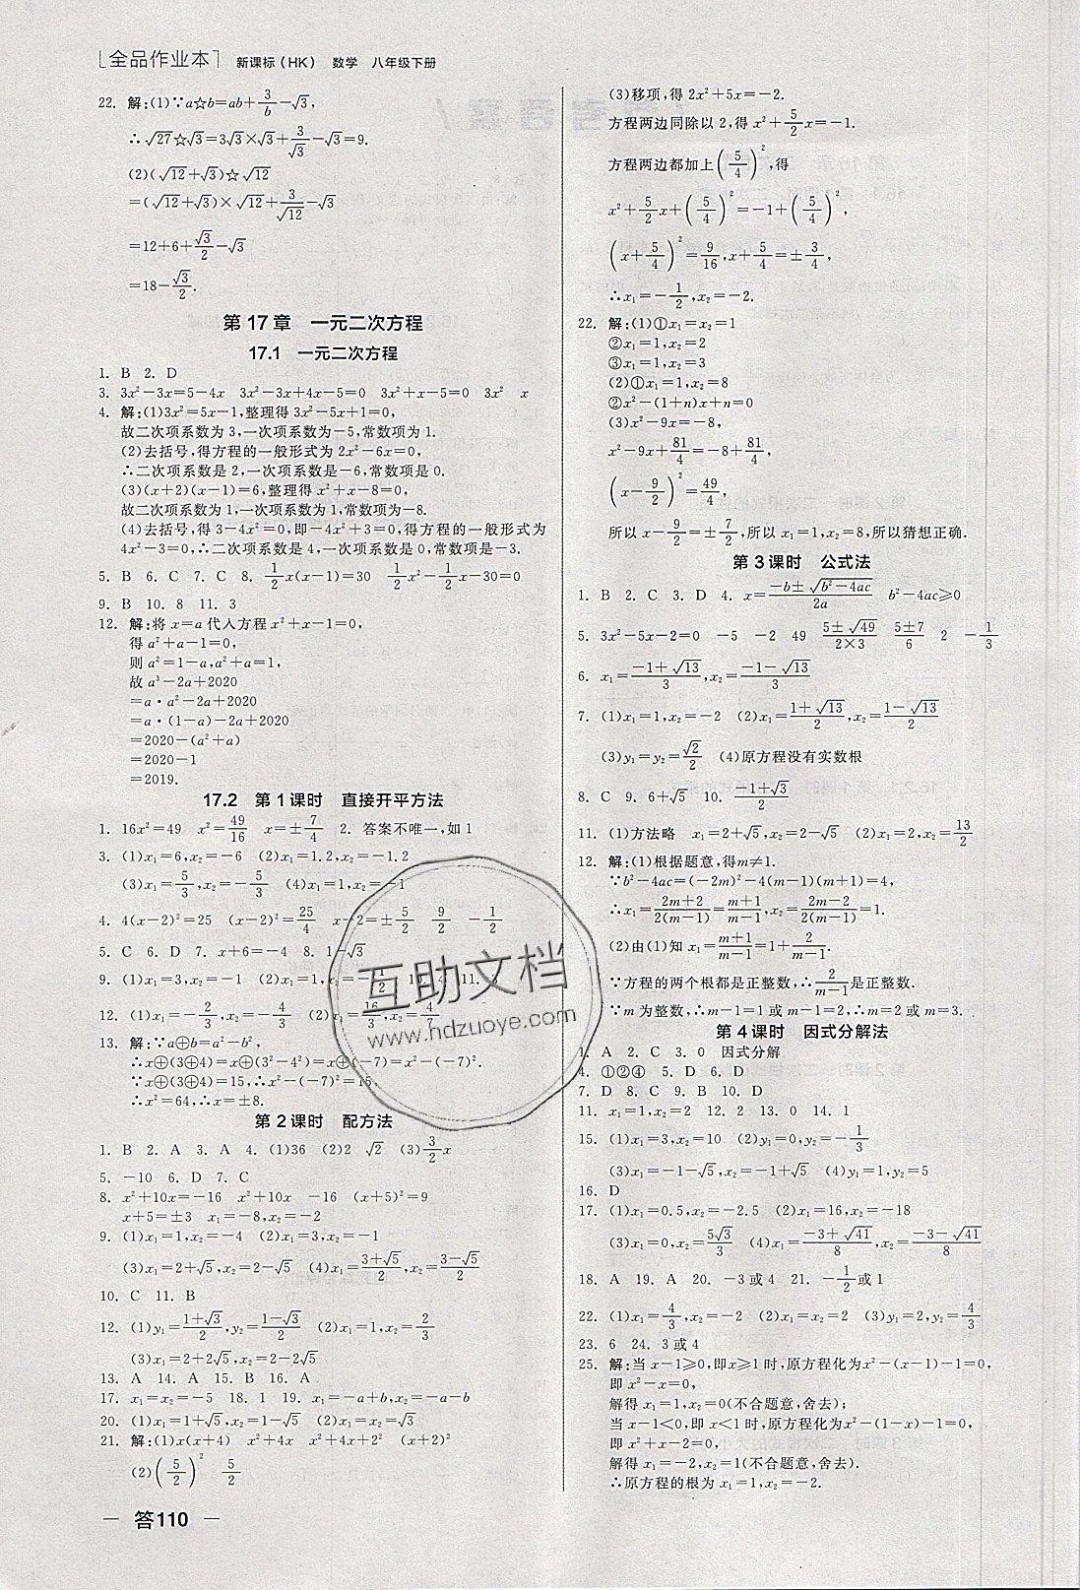 [全品作业本] 新课标(HK) 数学 八年级下册
22. 解:(1)∵a☆b=ab+3/b-√3,
∴√27☆√3=3√3×√3+3/√3-√3=9.
(2)(√12+√3)☆√12
=(√12+√3)×√12+3/√12-√3
=12+6+√3/2-√3
=18-√3/2.
第17章 一元二次方程
17.1 一元二次方程
1. B 2. D
3. 3x²-3x=5-4x 3x²-3x+4x-5=0 3x²+x-5=0 3x² x
4. 解:(1)3x²=5x-1,整理得3x²-5x+1=0,
故二次项系数为3,一次项系数为-5,常数项为1.
(2)去括号,得方程的一般形式为2x²-6x=0,
∴二次项系数是2,一次项系数是-6,常数项是0.
(3)(x+2)(x-1)=6,整理得x²+x-8=0,
故二次项系数为1,一次项系数为1,常数项为-8.
(4)去括号,得3-4x²=0,即-4x²+3=0,得方程的一般形式为
4x²-3=0,∴二次项系数是4,一次项系数是0,常数项是-3.
5. B 6. C 7. C 8. 1/2x(x-1)=30 1/2x²-1/2x-30=0
9. B 10. 8 11. 3
12. 解:将x=a代入方程x²+x-1=0,
得a²+a-1=0,
则a²=1-a,a²+a=1,
故a³-2a+2020
=a·a²-2a+2020
=a·(1-a)-2a+2020
=2020-(a²+a)
=2020-1
=2019.
17.2 第1课时 直接开平方法
1. 16x²=49 x²=49/16 x=±7/4 2. 答案不唯一,如1
3. (1)x₁=6,x₂=-6 (2)x₁=1.2,x₂=-1.2
(3)x₁=5/3,x₂=-5/3 (4)x₁=1,x₂=-1
4. 4(x-2)²=25 (x-2)²=25/4 x-2=±5/2 9/2 -1/2
5. C 6. D 7. x+6=-4 8. 1-√3
9. (1)x₁=3,x₂=-1 (2)x₁=1,x₂=-1/2 10. 4 11. 3
12. (1)x₁=-2/3,x₂=-2 (2)x₁=16/3,x₂=4/7
13. 解:∵a⊕b=a²-b²,
∴x⊕(3⊕4)=x⊕(3²-4²)=x⊕(-7)=x²-(-7)².
∵x⊕(3⊕4)=15,∴x²-(-7)²=15,
∴x²=64,∴x=±8.
第2课时 配方法
1. B 2. A 3. A 4. (1)36 (2)2 √2 (3)3/2x
5. -10 6. D 7. C
8. x²+10x=-16 x²+10x -16 (x+5)²=9
x+5=±3 x₁=-8,x₂=-2
9. (1)x₁=1,x₂=-4 (2)x₁=3,x₂=-1
(3)x₁=2+√5,x₂=2-√5 (4)x₁=3+√5/2,x₂=3-√5/2
10. C 11. B
12. (1)y₁=1+√3/2,y₂=1-√3/2 (2)x₁=1,x₂=2/3
(3)x₁=2+2√5,x₂=2-2√5
13. A 14. A 15. B 16. A
17. x₁=x₂=-5 18. 1 19. x₁=-a+b,x₂=-a-b
20. (1)x₁=1+√5,x₂=1-√5 (2)x₁=3,x₂=1
21. 解:(1)x(x+4) x²+4x x²+4x (x+2)²
(2)(5/2)² 5/2
— 答110 —
(3)移项,得2x²+5x=-2.
方程两边同除以2,得x²+5/2x=-1.
方程两边都加上(5/4)²,得
x²+5/2x+(5/4)²=-1+(5/4)²,
(x+5/4)²=9/16,x+5/4=±3/4,
∴x₁=-1/2,x₂=-2.
22. 解:(1)①x₁=x₂=1
②x₁=1,x₂=2
③x₁=1,x₂=3
(2)①x₁=1,x₂=8
②x²-(1+n)x+n=0
(3)x²-9x=-8,
x²-9x+81/4=-8+81/4,
(x-9/2)²=49/4,
所以x-9/2=±7/2,所以x₁=1,x₂=8,所以猜想正确.
第3课时 公式法
1. B 2. C 3. D 4. x=-b±√b²-4ac/2a b²-4ac≥0
5. 3x²-5x-2=0 -5 -2 49 5±√49/2×3 5±7/6 2 -1/3
6. x₁=-1+√13/3,x₂=-1-√13/3
7. (1)x₁=1,x₂=-2 (2)x₁=1+√13/2,x₂=1-√13/2
(3)y₁=y₂=√2/2 (4)原方程没有实数根
8. C 9. 6+√5 10. -1+√3/2
11. (1)方法略 x₁=2+√5,x₂=2-√5 (2)x₁=2,x₂=13/2
12. 解:(1)根据题意,得m≠1.
∵b²-4ac=(-2m)²-4(m-1)(m+1)=4,
∴x₁=2m+2/2(m-1)=m+1/m-1,x₂=2m-2/2(m-1)=1.
(2)由(1)知x₁=m+1/m-1=1+2/m-1.
∵方程的两个根都是正整数,∴2/m-1是正整数.
∵m为整数,∴m-1=1或m-1=2,∴m=2或m=3.
第4课时 因式分解法
1. A 2. C 3. 0 因式分解
4. ①②④ 5. D 6. D
7. D 8. C 9. B 10. D
11. x₁=1,x₂=2 12. 2 13. 0 14. 1
15. (1)x₁=3,x₂=10 (2)y₁=0,y₂=-1/3
(3)x₁=-1-√5,x₂=-1+√5 (4)y₁=1,y₂=5
16. D
17. (1)x₁=0.5,x₂=-2.5 (2)x₁=16,x₂=-18
(3)x₁=0,x₂=5√3/3 (4)x₁=-3+√41/8,x₂=-3-√41/8
18. A 19. A 20. -3或4 21. -1/2或1
22. (1)x₁=4/3,x₂=-2 (2)x₁=x₂=2 (3)y₁=2,y₂=4/3
23. 6 24. 3或4
25. 解:当x-1≥0,即x≥1时,原方程化为x²-(x-1)-1=0,
即x²-x=0,
解得x₁=1,x₂=0(不合题意,舍去);
当x-1<0,即x<1时,原方程化为x²+(x-1)-1=0,
即x²+x-2=0,
解得x₁=-2,x₂=1(不合题意,舍去).
∴原方程的根为x₁=1,x₂=-2.
互助文档
www.hdzuoye.com